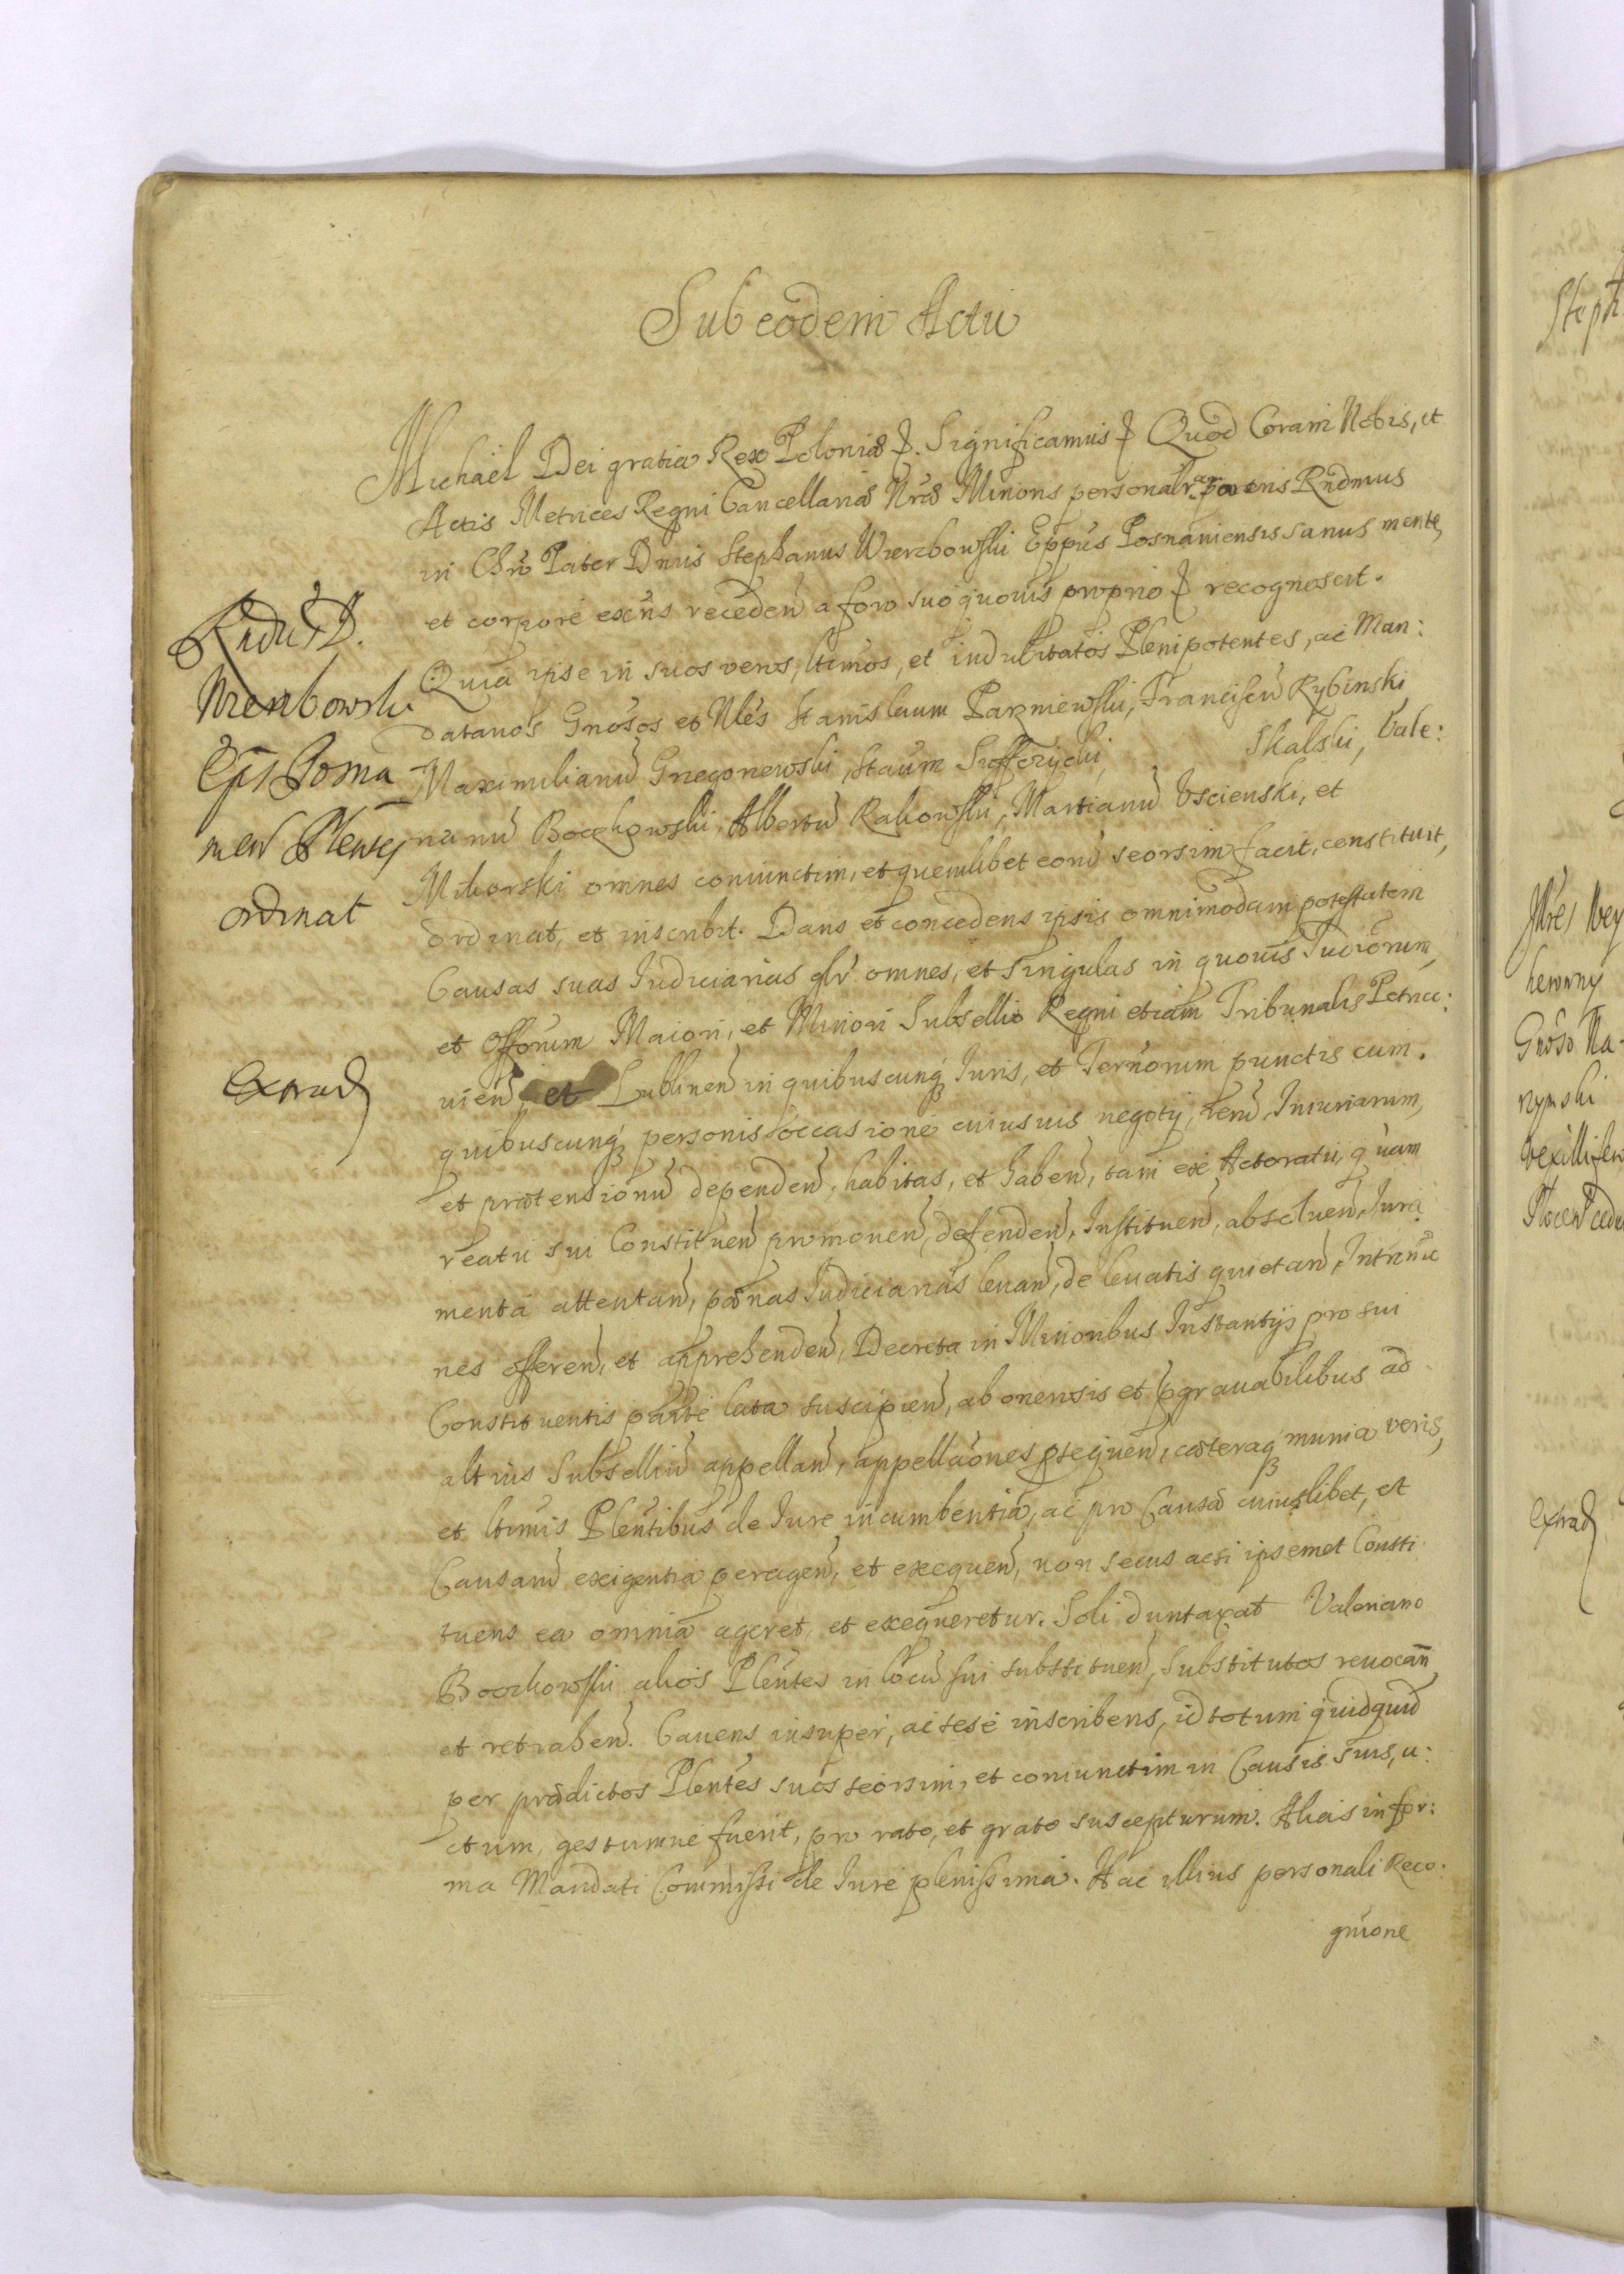 Sub eodem Actu
Michaël Dei gratia Rex Poloniæ Significamus Quod Coram Nobis, et
Actis Metrices Regni Cancellariæ Nræ Minoris personalr parens Rndmus
in Chro Pater Dnus Stephanus Wierzbowski Eppus Posnaniensis sanus mente,
et corpore exens receden a foro suo quouis proprio recognoscit.
Rndus D.
Wierzbowski
Eps Posna
nien Plentes
ordinat
Quia ipse in suos veros, ltimos, et indubitatos Plenipotentes, ac Man:
datarios Gnosos et Nles Stanislaum Parzniewski, Franciscu Rybinski
Maximilianu Gregorewski, Staum Skalski, Vale:
rianu Boczkowski, Albertu Rakowski, Martianu Uscienski, et
Miborski omnes coniunctim, et quemlibet eoru seorsim facit, constituit,
ordinat, et inscribit. Dans et concedens ipsis omnimodam potestatem
Causas suas Judiciarias glr omnes, et singulas in quouis Judiciorum,
et Offorum Maiori, et Minori Subsellio Regni etiam Tribunalis Petrico:
Extrad
uien, et Lublinen in quibuscunq Juris, et Ternorum punctis cum
quibuscunq personis occasione cuiusuis negotij, reru, Iniuriarum,
et prætensionu dependen, habitas, et haben, tam ex Actoratu, quam
reatu sui Constituen promouen, defenden, Instituen, absoluen, Jura
menta attentan, pænas Judiciarias leuan, de leuatis quietan, Intromis
nes offeren, et apprehenden, Decreta in Minoribus Instantijs pro sui
Constituentis parte lata suscipien, ab onerosis et pgrauabilibus ad
altius Subselliu appellan, appellaones psequen, cæteraq munia veris,
et ltimis Plentibus de Jure incumbentia, ac pro Causæ cuiuslibet, et
Causaru exigentia peragen, et exequen, non secus acsi ipsemet Consti
tuens ea omnia ageret, et exequeretur. Soli duntaxat Valeriano
Boczkowski alios Plentes in locu sui substituen, substitutos reuocan
et retrahen. Cauens insuper, ac sese inscribens, id totum quidquid
per prædictos Plentes suos seorsim, et coniunctim in Causis suis, a:
ctum, gestumue fuerit, pro rato, et grato suscepturum. Alias in for:
ma Mandati Commissi de Jure plenissima. Hac illius personali Reco:
gnione